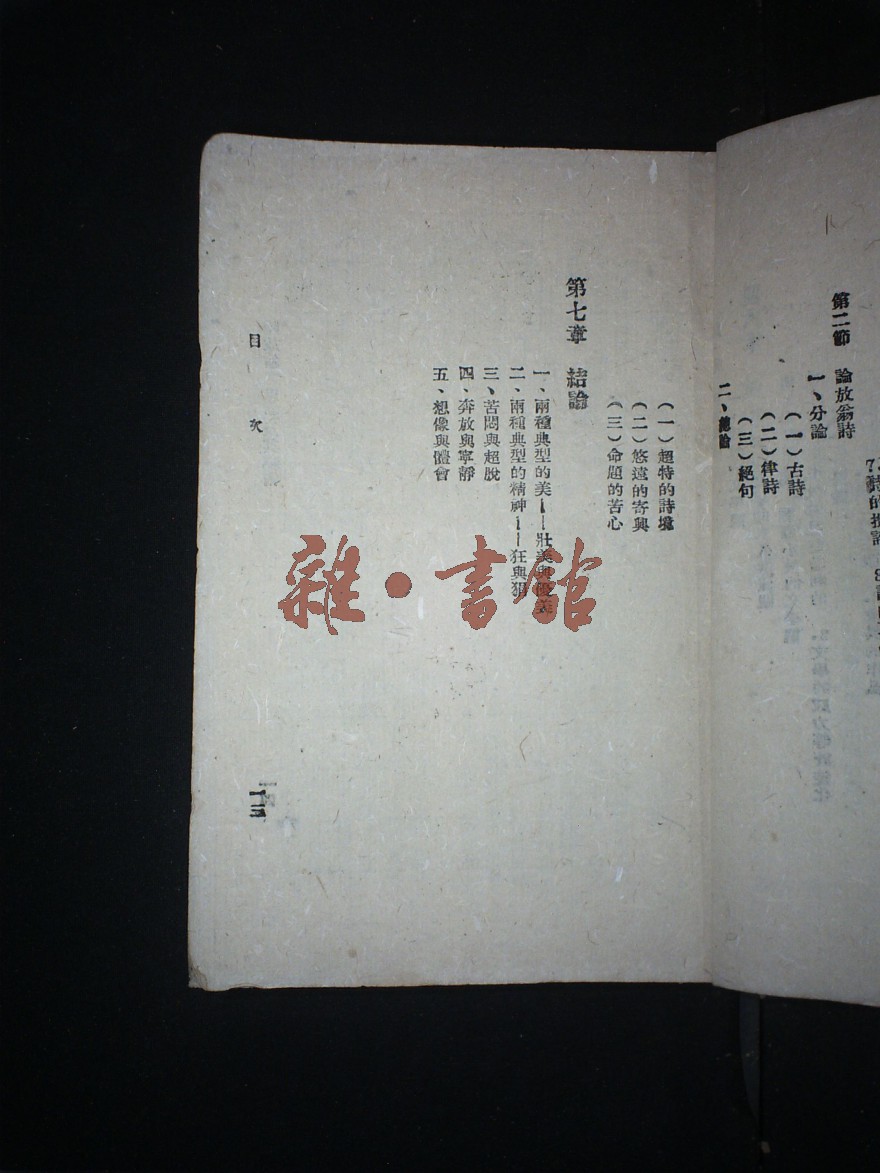 第二節　論放翁詩
一、分論
（一）古詩
（二）律詩
（三）絕句
二、總論
（一）超特的詩境
（二）悠遠的寄興
（三）命題的苦心
第七章　結論
一、兩種典型的美——壯美與優美
二、兩種典型的精神——狂與狷
三、苦悶與超脫
四、奔放與寧靜
五、想像與體會
目次
雜·書館